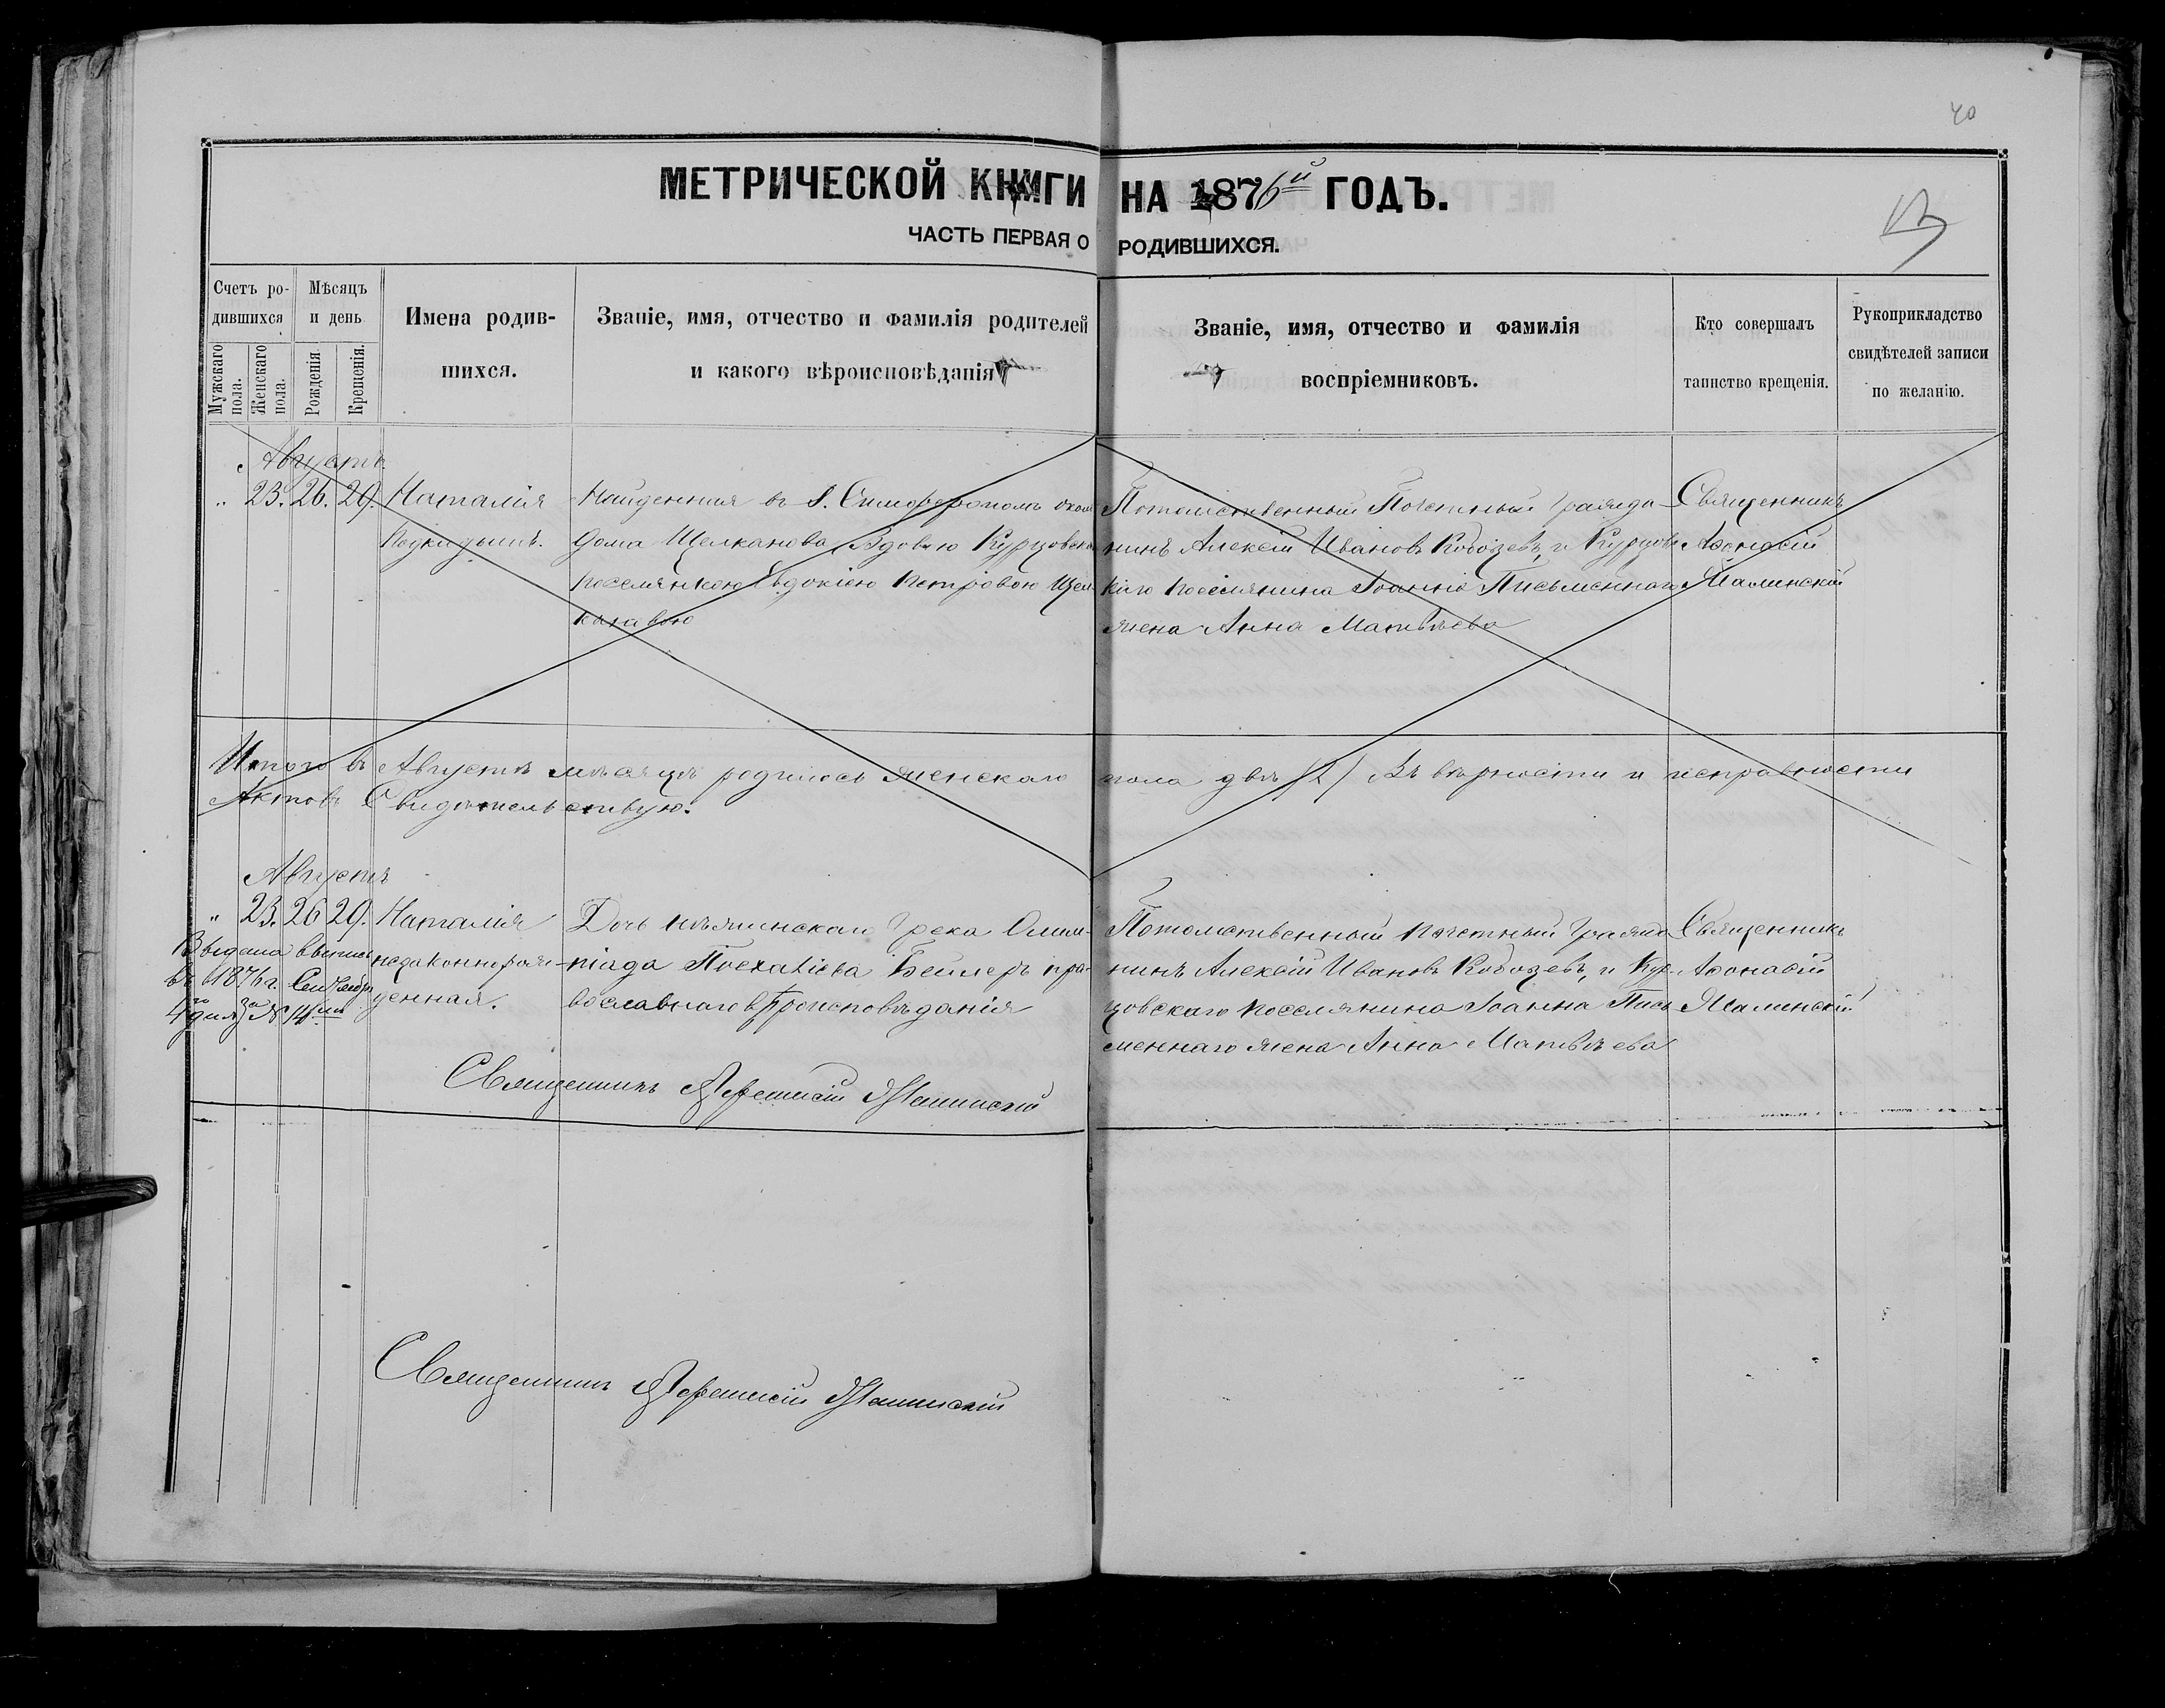 40
МЕТРИЧЕСКОЙ КНИГИ НА 1876й ГОДЪ.
13
ЧАСТЬ ПЕРВАЯ О РОДИВШИХСЯ.
Счетъ ро-
дившихся
Мужскаго пола.
Женскаго пола.
Мѣсяцъ
и день
Рожденія.
Крещенія.
Имена родив-
шихся.
Званіе, имя, отчество и фамилія родителей
и какого вѣроисповѣданія
Званіе, имя, отчество и фамилія
воспріемниковъ.
Кто совершалъ
таинство крещенія.
Рукоприкладство
свидѣтелей записи
по желанію.
Августъ.
" 23. 26. 29.
Наталія
Подкидышъ.
Найденная въ г. Симферополѣ около
дома Щелканова Вдовою Курцовскою
поселянкою Евдокіею Петровою Щел-
кановою
Потомственный Почетный Гражда-
нинъ Алексій Ивановъ Кобозевъ, и Курцовс-
каго поселянина Іоанна Письменнаго
жена Анна Матвѣева
Священникъ
Афонасій
Малинскій
Итого въ Августѣ мѣсяцѣ родилось женскаго пола двѣ /2/ Въ вѣрности и исправности
Актовъ Свидѣтельствую.
Августъ
" 23. 26 29.
Выдана выпись
въ 1876 г. Сентября
4го дня за № 14мъ
Наталія
незаконнорож-
денная.
Дочь нѣжинскаго Грека Олим-
піада Бейлеръ пра-
вославнаго вѣроисповѣданія
Потомственный почетный Гражда-
нинъ Алексій Ивановъ Кобозевъ, и Кур-
цовскаго поселянина Іоанна Пись-
меннаго жена Анна Матвѣева
Священникъ
Афонасій
Малинскій
Священникъ Афанасій Малинскій
Священникъ Афанасій Малинскій